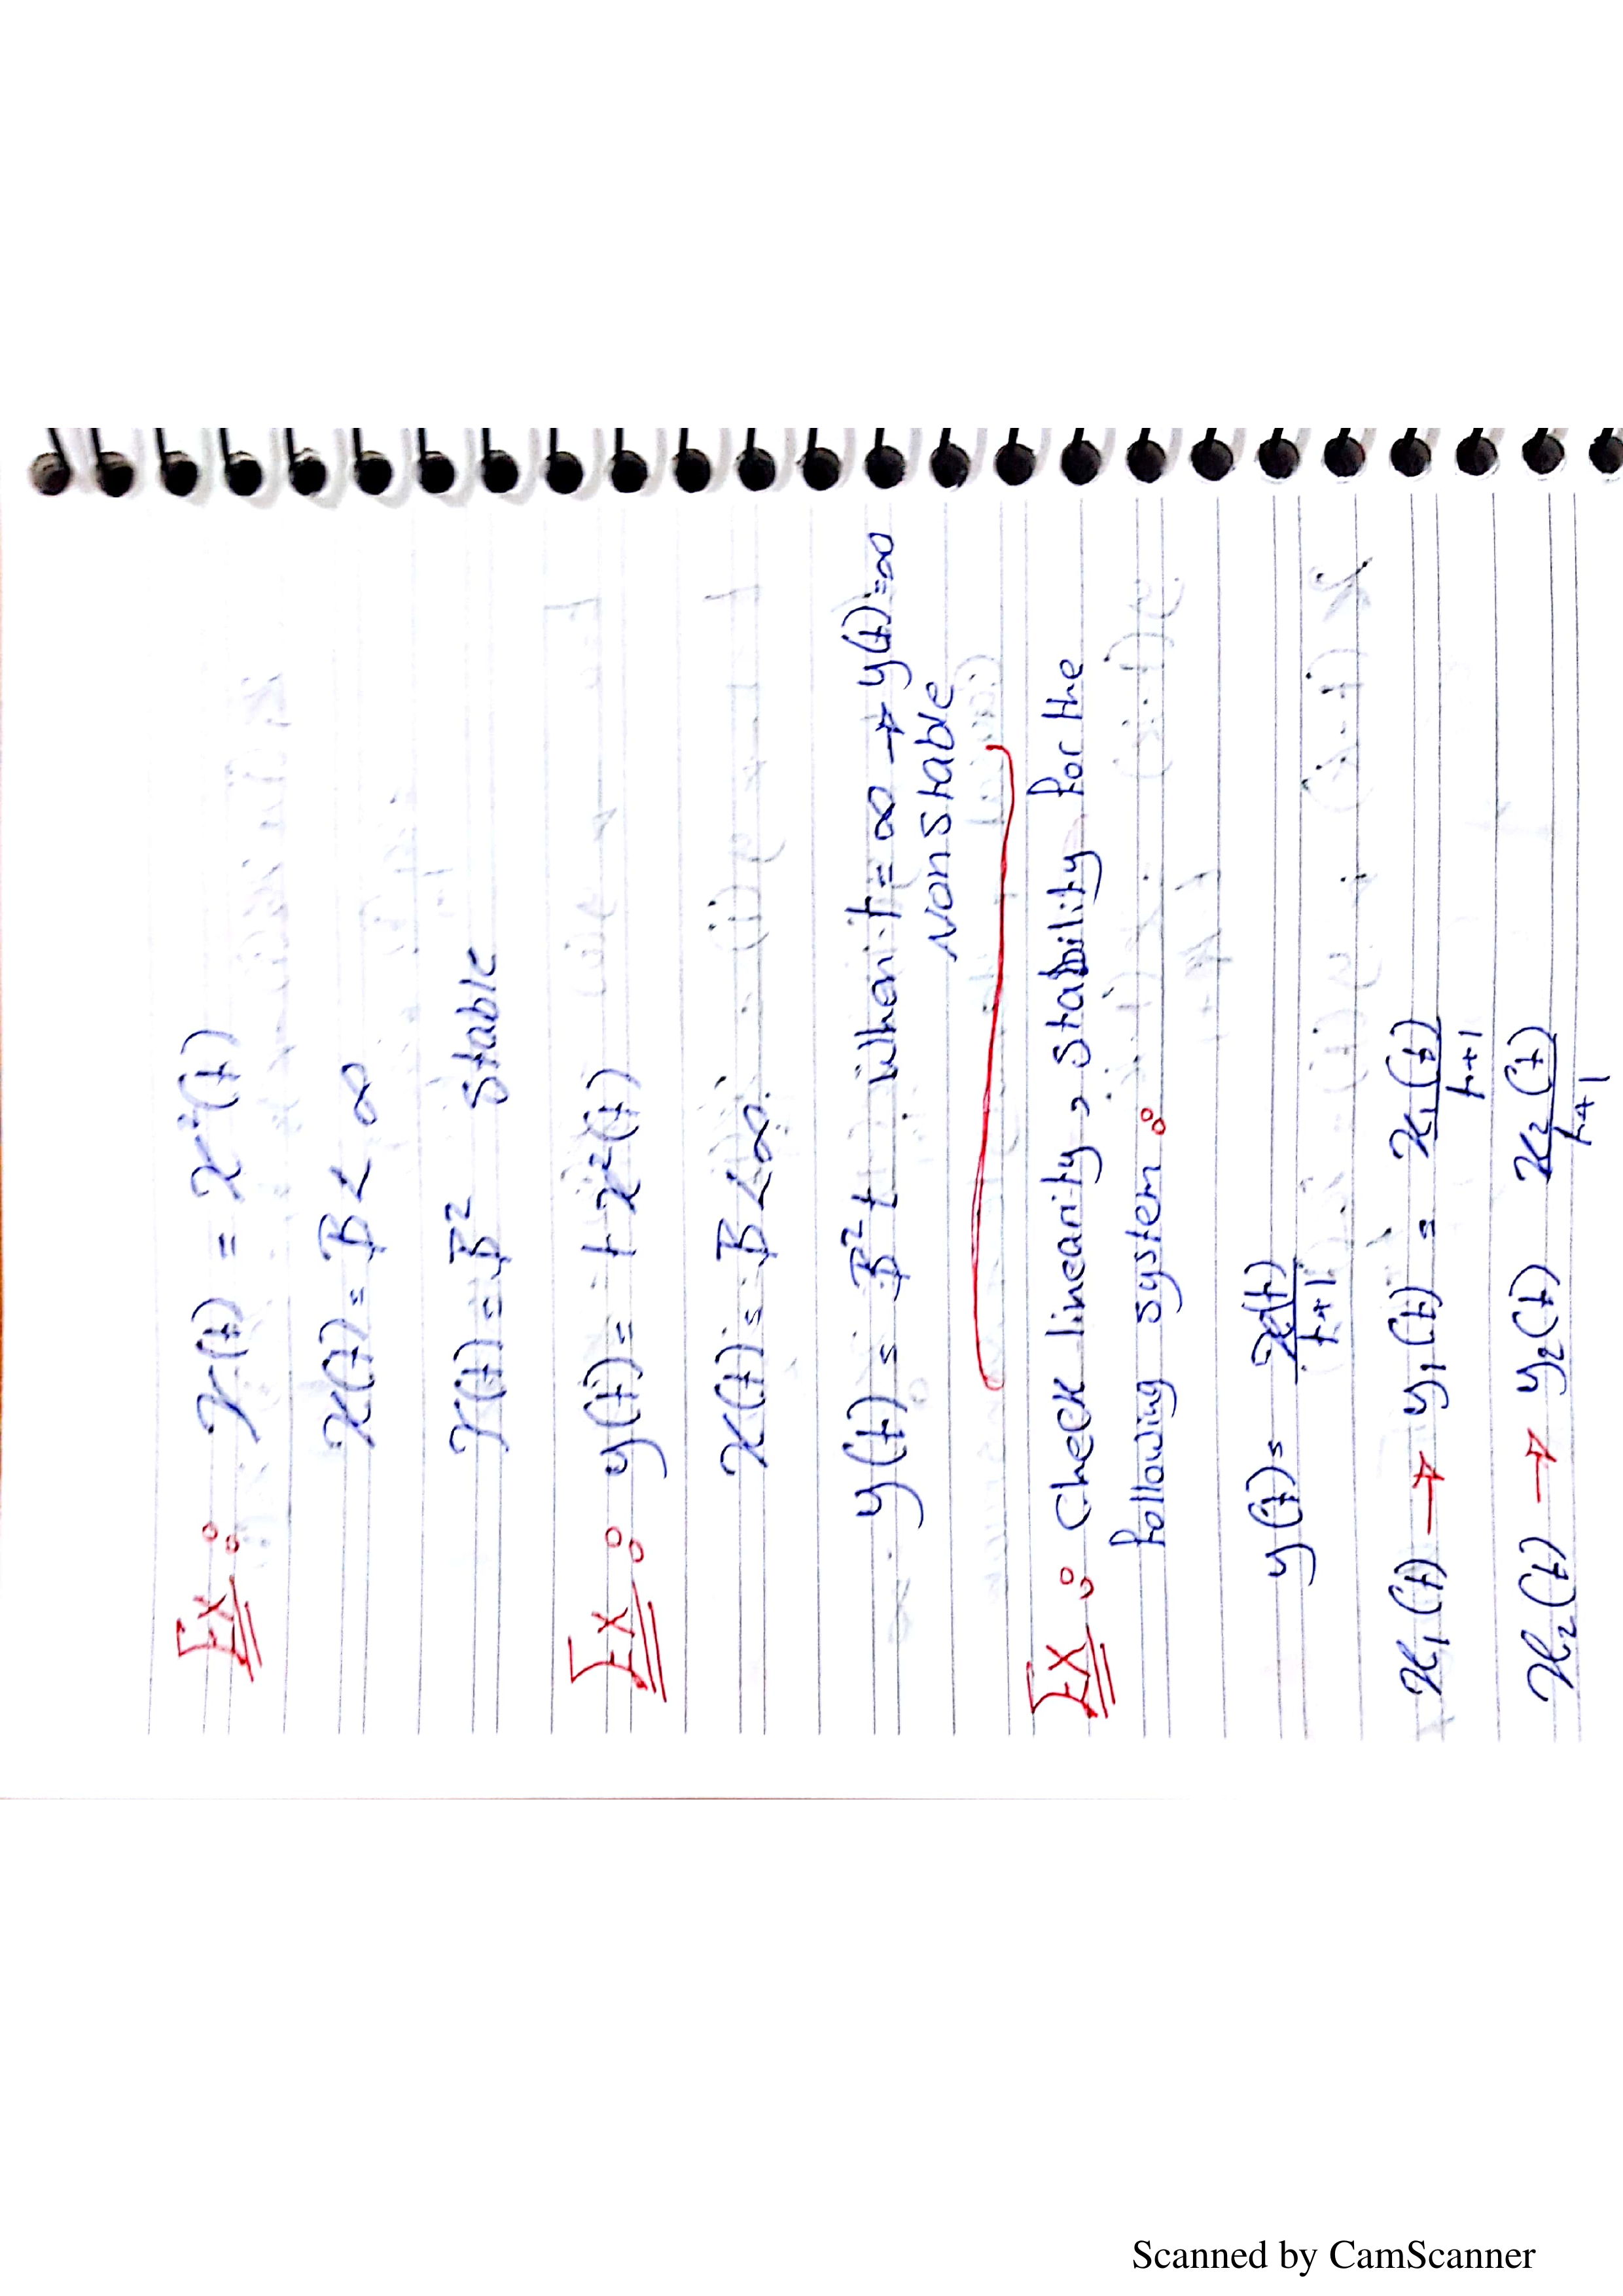 Ex: y(t) = x²(t)
x(t) = B < ∞
y(t) = B² stable
Ex: y(t) = t x²(t)
x(t) = B < ∞
y(t) = B² t when t = ∞ → y(t) = ∞
Non stable
Ex: Check linearity, stability for the
following system:
y(t) = x(t)/t+1
x₁(t) → y₁(t) = x₁(t)/t+1
x₂(t) → y₂(t) x₂(t)/t+1
Scanned by CamScanner